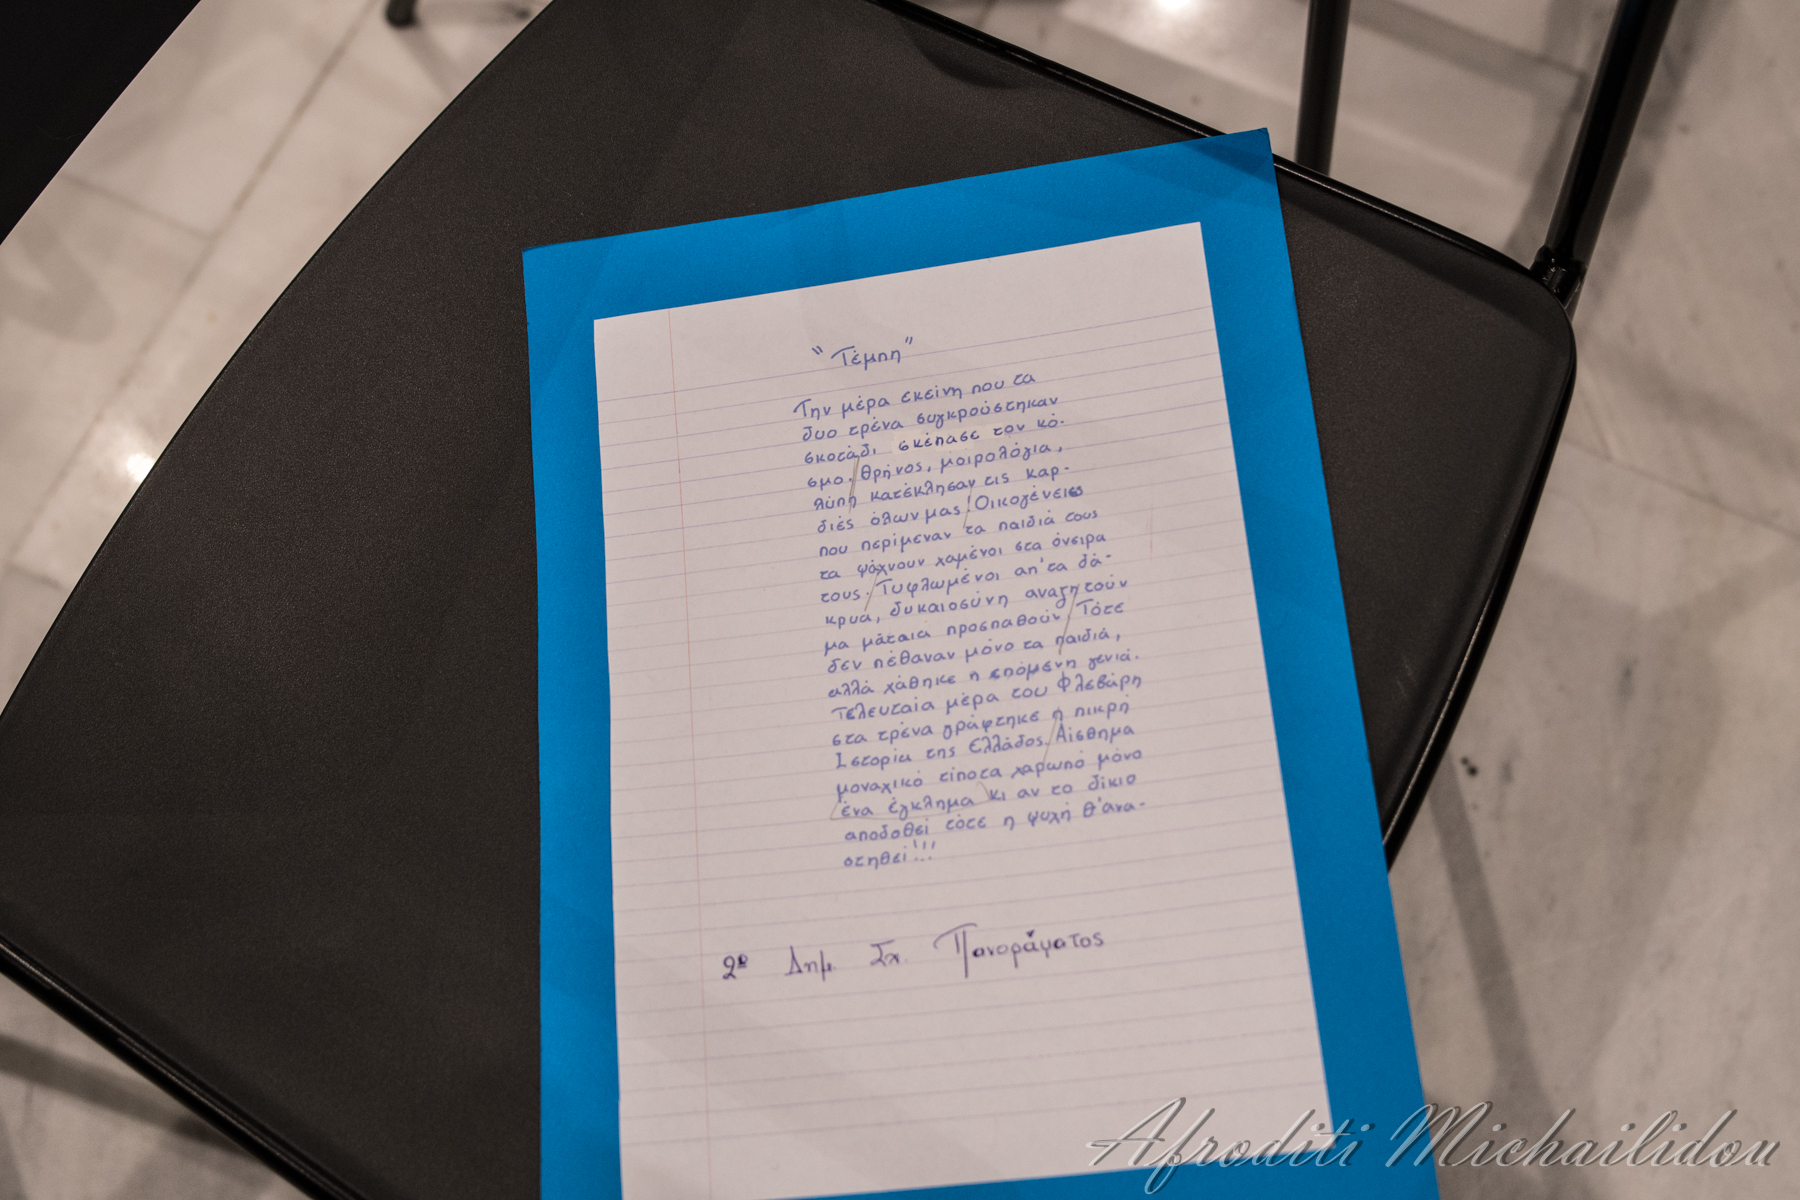 "Τέμπη"
Την μέρα εκείνη που τα
δυο τρένα συγκρούστηκαν
σκοτάδι σκέπασε τον κό-
σμο. Θρήνος, μοιρολόγια,
λύπη κατέκλησαν τις καρ-
διές όλων μας. Οικογένειες
που περίμεναν τα παιδιά τους
τα ψάχνουν χαμένοι στα όνειρα
τους. Τυφλωμένοι απ'τα δά-
κρυα, δυκαιοσύνη αναζητούν
μα μάταια προσπαθούν. Τότε
δεν πέθαναν μόνο τα παιδιά,
αλλά χάθηκε η επόμενη γενιά.
Τελευταία μέρα του Φλεβάρη
στα τρένα γράφτηκε η πικρή
Ιστορία της Ελλάδος. Αίσθημα
μοναχικό τίποτα χαρωπό μόνο
ένα έγκλημα κι αν το δίκιο
αποδοθεί τότε η ψυχή θ'ανα-
στηθεί!!!
2ο Δημ. Σχ. Πανοράματος
Afroditi Michailidou